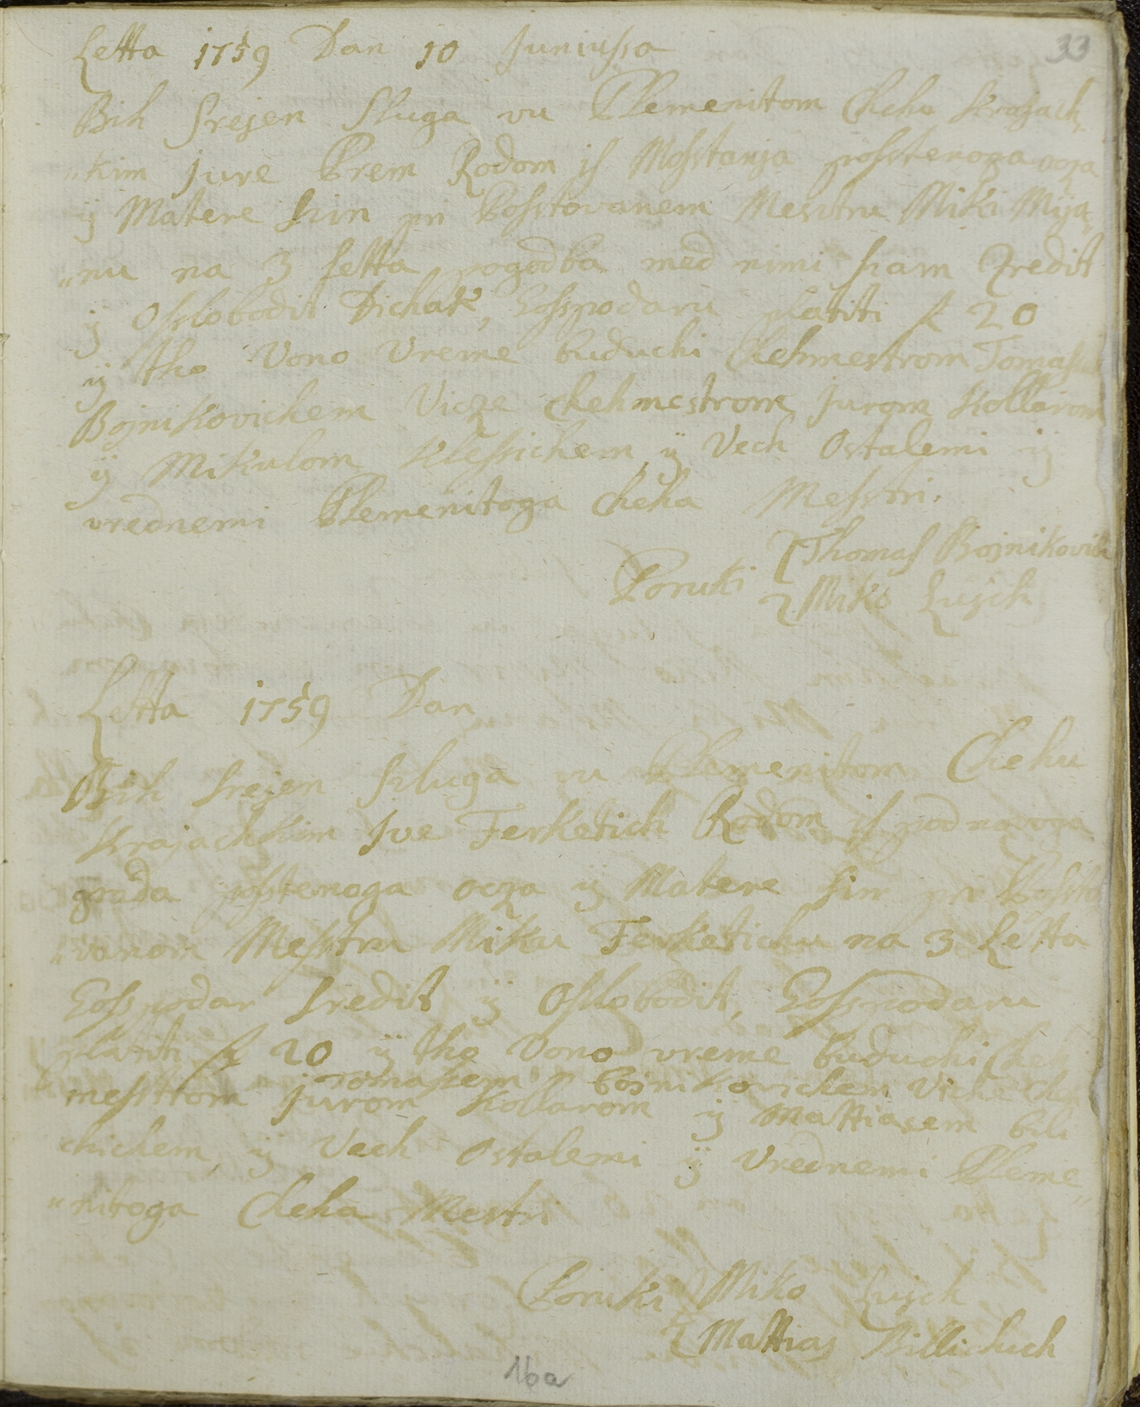 33
Letta 1759 Dan 10 Juniussa
Bih Srejen Sluga vu Plemenitom Chehu Krajach,
"kim Jure Prem Rodom iz Mosstanja possтenoga ocza
ÿ Matere Szin pri Posstovanem Mestru Miki Mija,
"nu na 3 letta pogodba med nimi szam Zredit
ÿ Oslobodit Dichak, Gosspodaru platiti f 20
ÿ tho Vono Vreme buduchi Chehmestrom Tomassem
Bojnikovichem Vicze Chehmestrom Jurom Kollarom
ÿ Mikulom Klessichem ÿ Vech Ostalemi ÿ
vrednemi Plemenitoga Cheha Messtri.
Poruki Thomas Bojnikovich
Miko Lujch
Letta 1759 Dan
Bih Srejen Szluga vu Plemenitom Chehu
Krajachkim Ive Ferketich Rodom iz pod novoga
grada posstenoga ocza ÿ Matere sin pri Possto
"vanom Messtru Miku Ferketichu na 3 Letta
Gosspodar Sredit ÿ Oslobodit, Gosspodaru
platiti f 20 ÿ tho Vono vreme buduchi Cheh
messtrom Tomassem Bojnikovichem Vicze Cheh
Jurom Kollarom ÿ Mattiasem bili
chichem, ÿ Vech Ostalemi ÿ Vrednemi Pleme,,
"nitoga Cheha Mestri
Poruki Miko Lujch
Mattias Billichich
16a